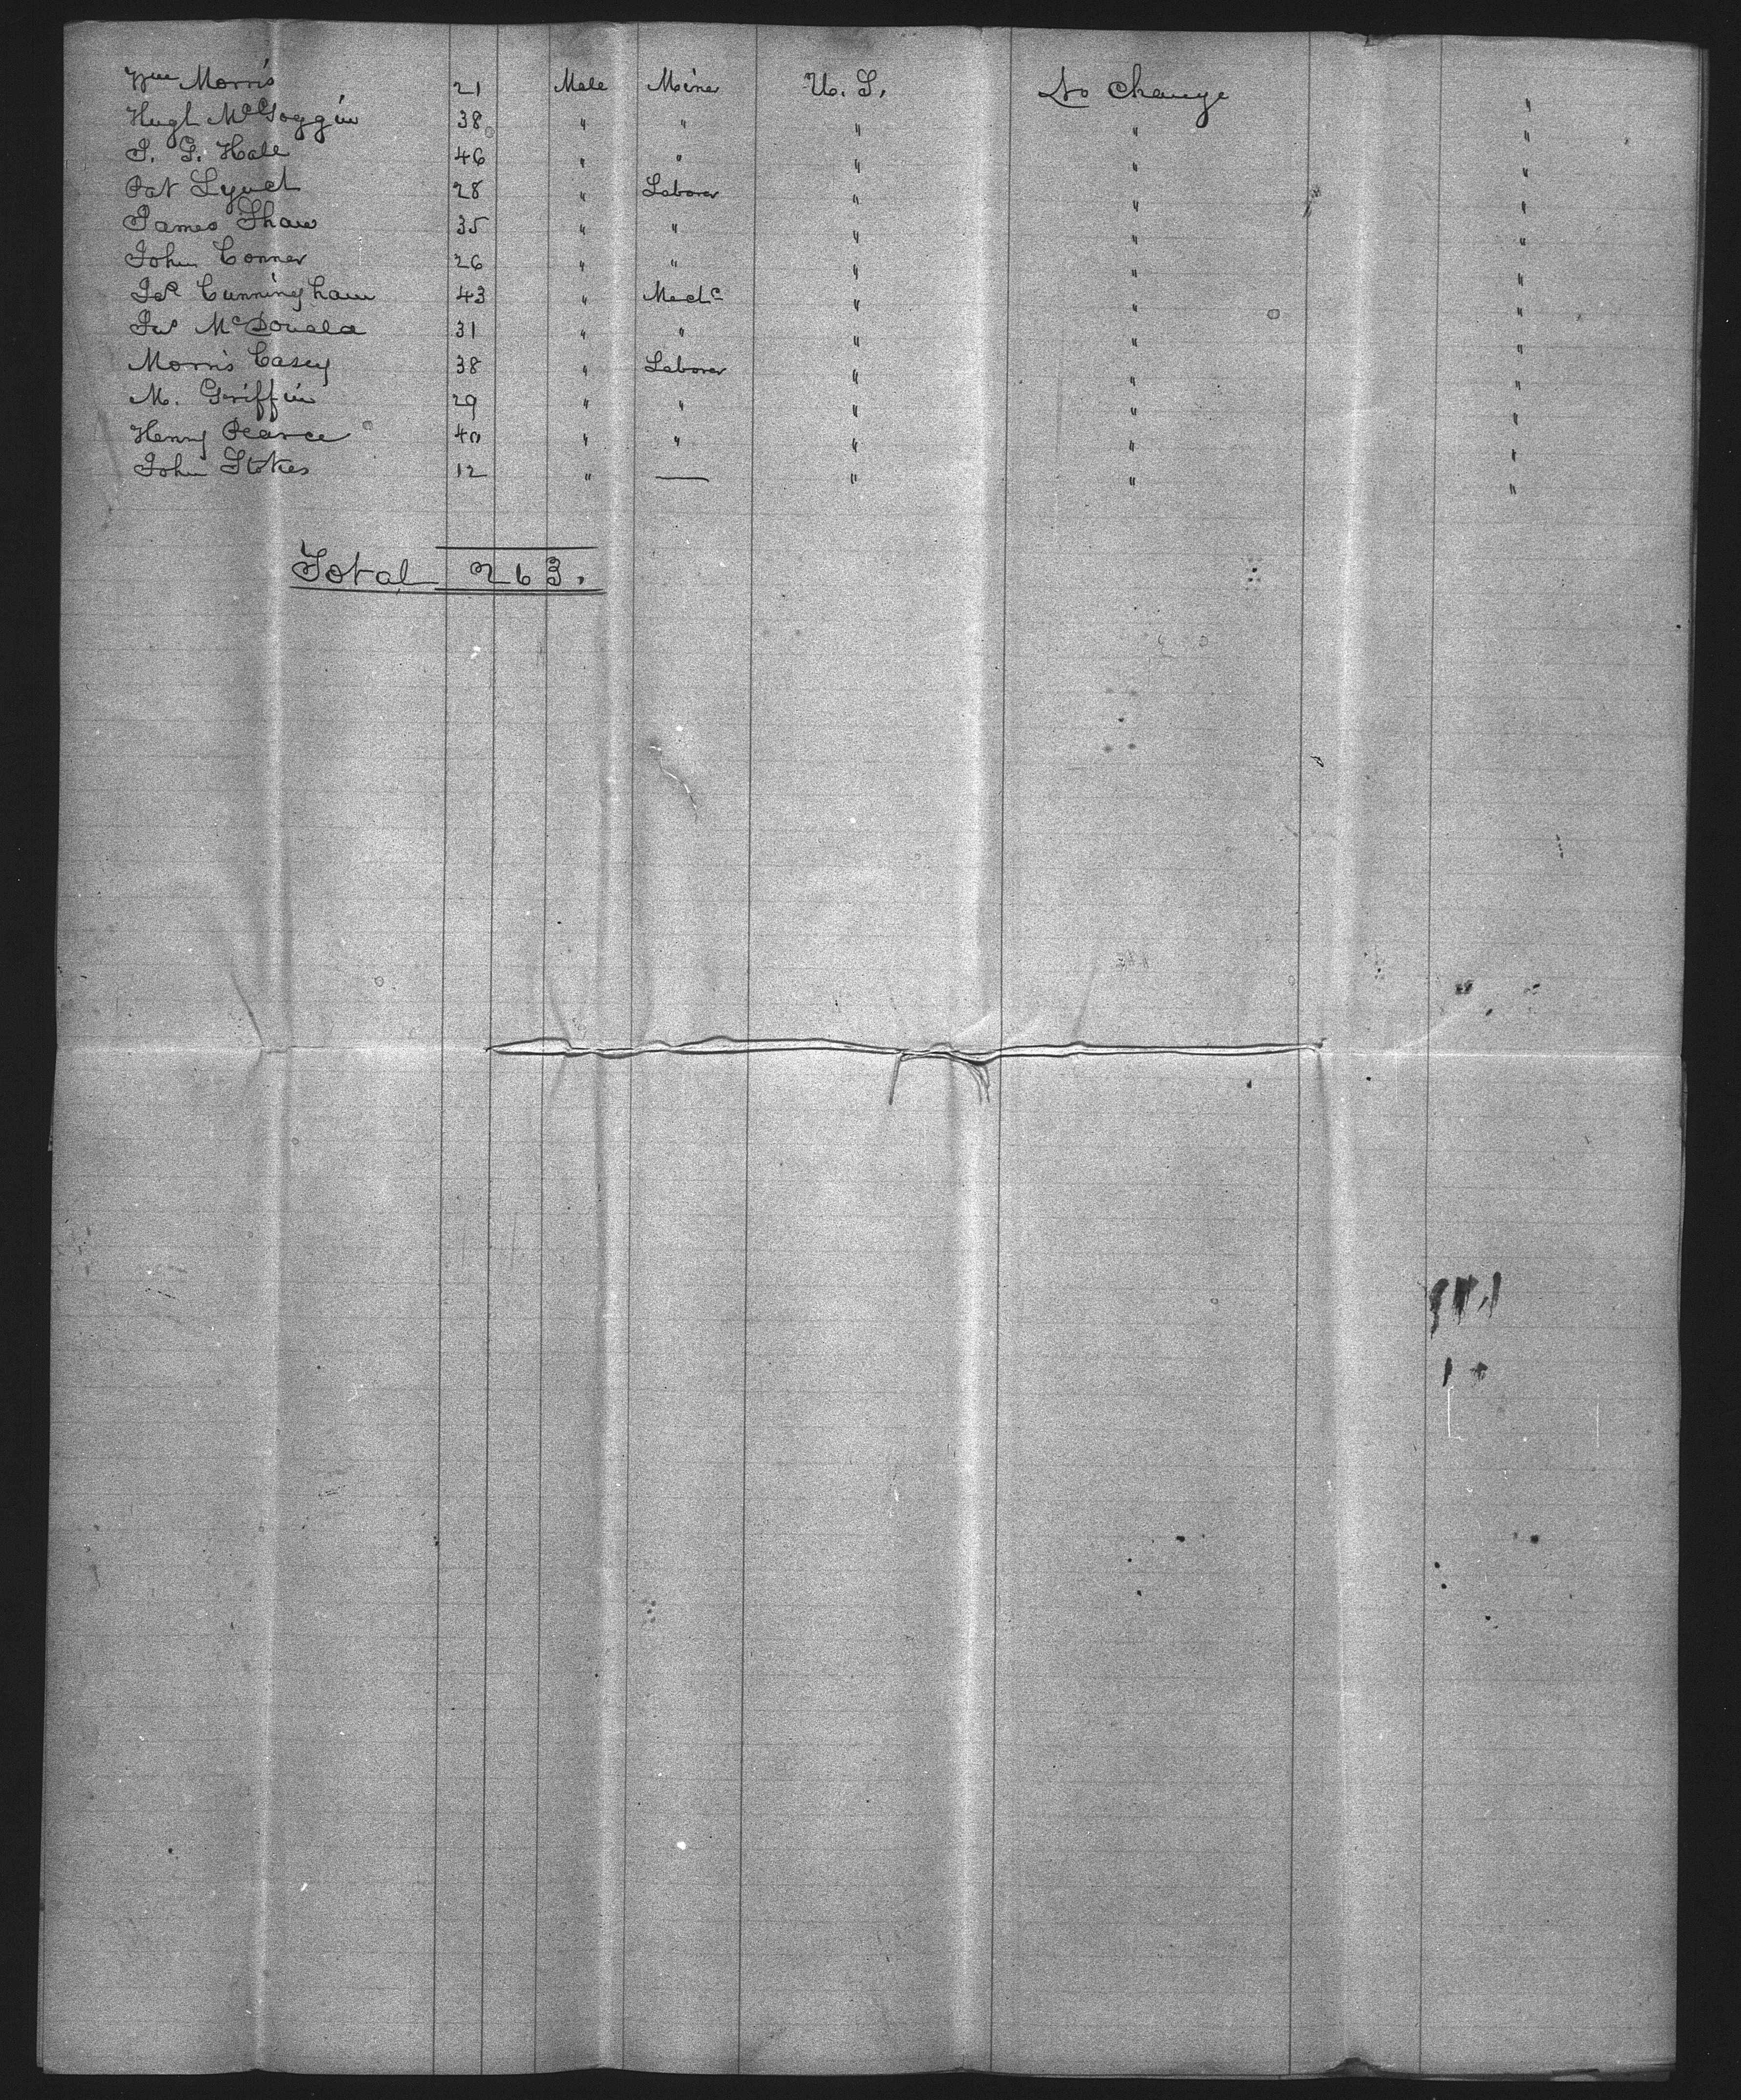 Wm Morris 21 Male Miner U. S. No Change "
Hugh McGoggin 38 " " " " "
S. S. Hall 46 " " " " "
Pat Lynch 28 " Laborer " " "
James Shaw 35 " " " " "
John Conner 26 " " " " "
Cunningham 43 " Mechc " " "
Jno McDonald 31 " " " " "
Morris Casey 38 " Laborer " " "
M. Griffin 29 " " " " "
Henry Pearce 40 " " " " "
John Stokes 12 " — " " "
Total 263.